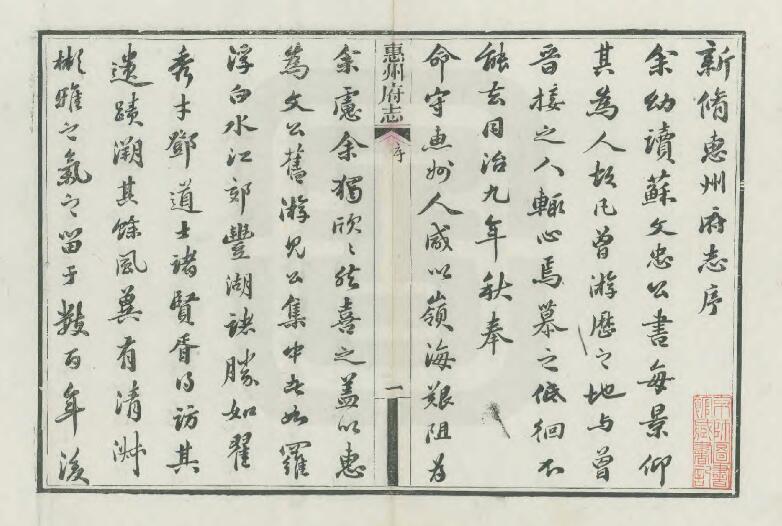 新脩惠州府志序
余幼讀蘇文忠公書每景仰
其為人故凡曾游歷之地与曾
晉接之人輒心焉慕之低徊不
能去同治九年秋奉
命守惠州人咸以嶺海艱阻為
惠州府志
序
一
余慮余獨欣欣然喜之蓋以惠
為文公舊游見公集中者如羅
浮白水江郊豐湖諸勝如翟
秀才鄧道士諸賢胥得訪其
遺蹟溯其餘風冀有清淑
彬雅之氣之留于數百年後